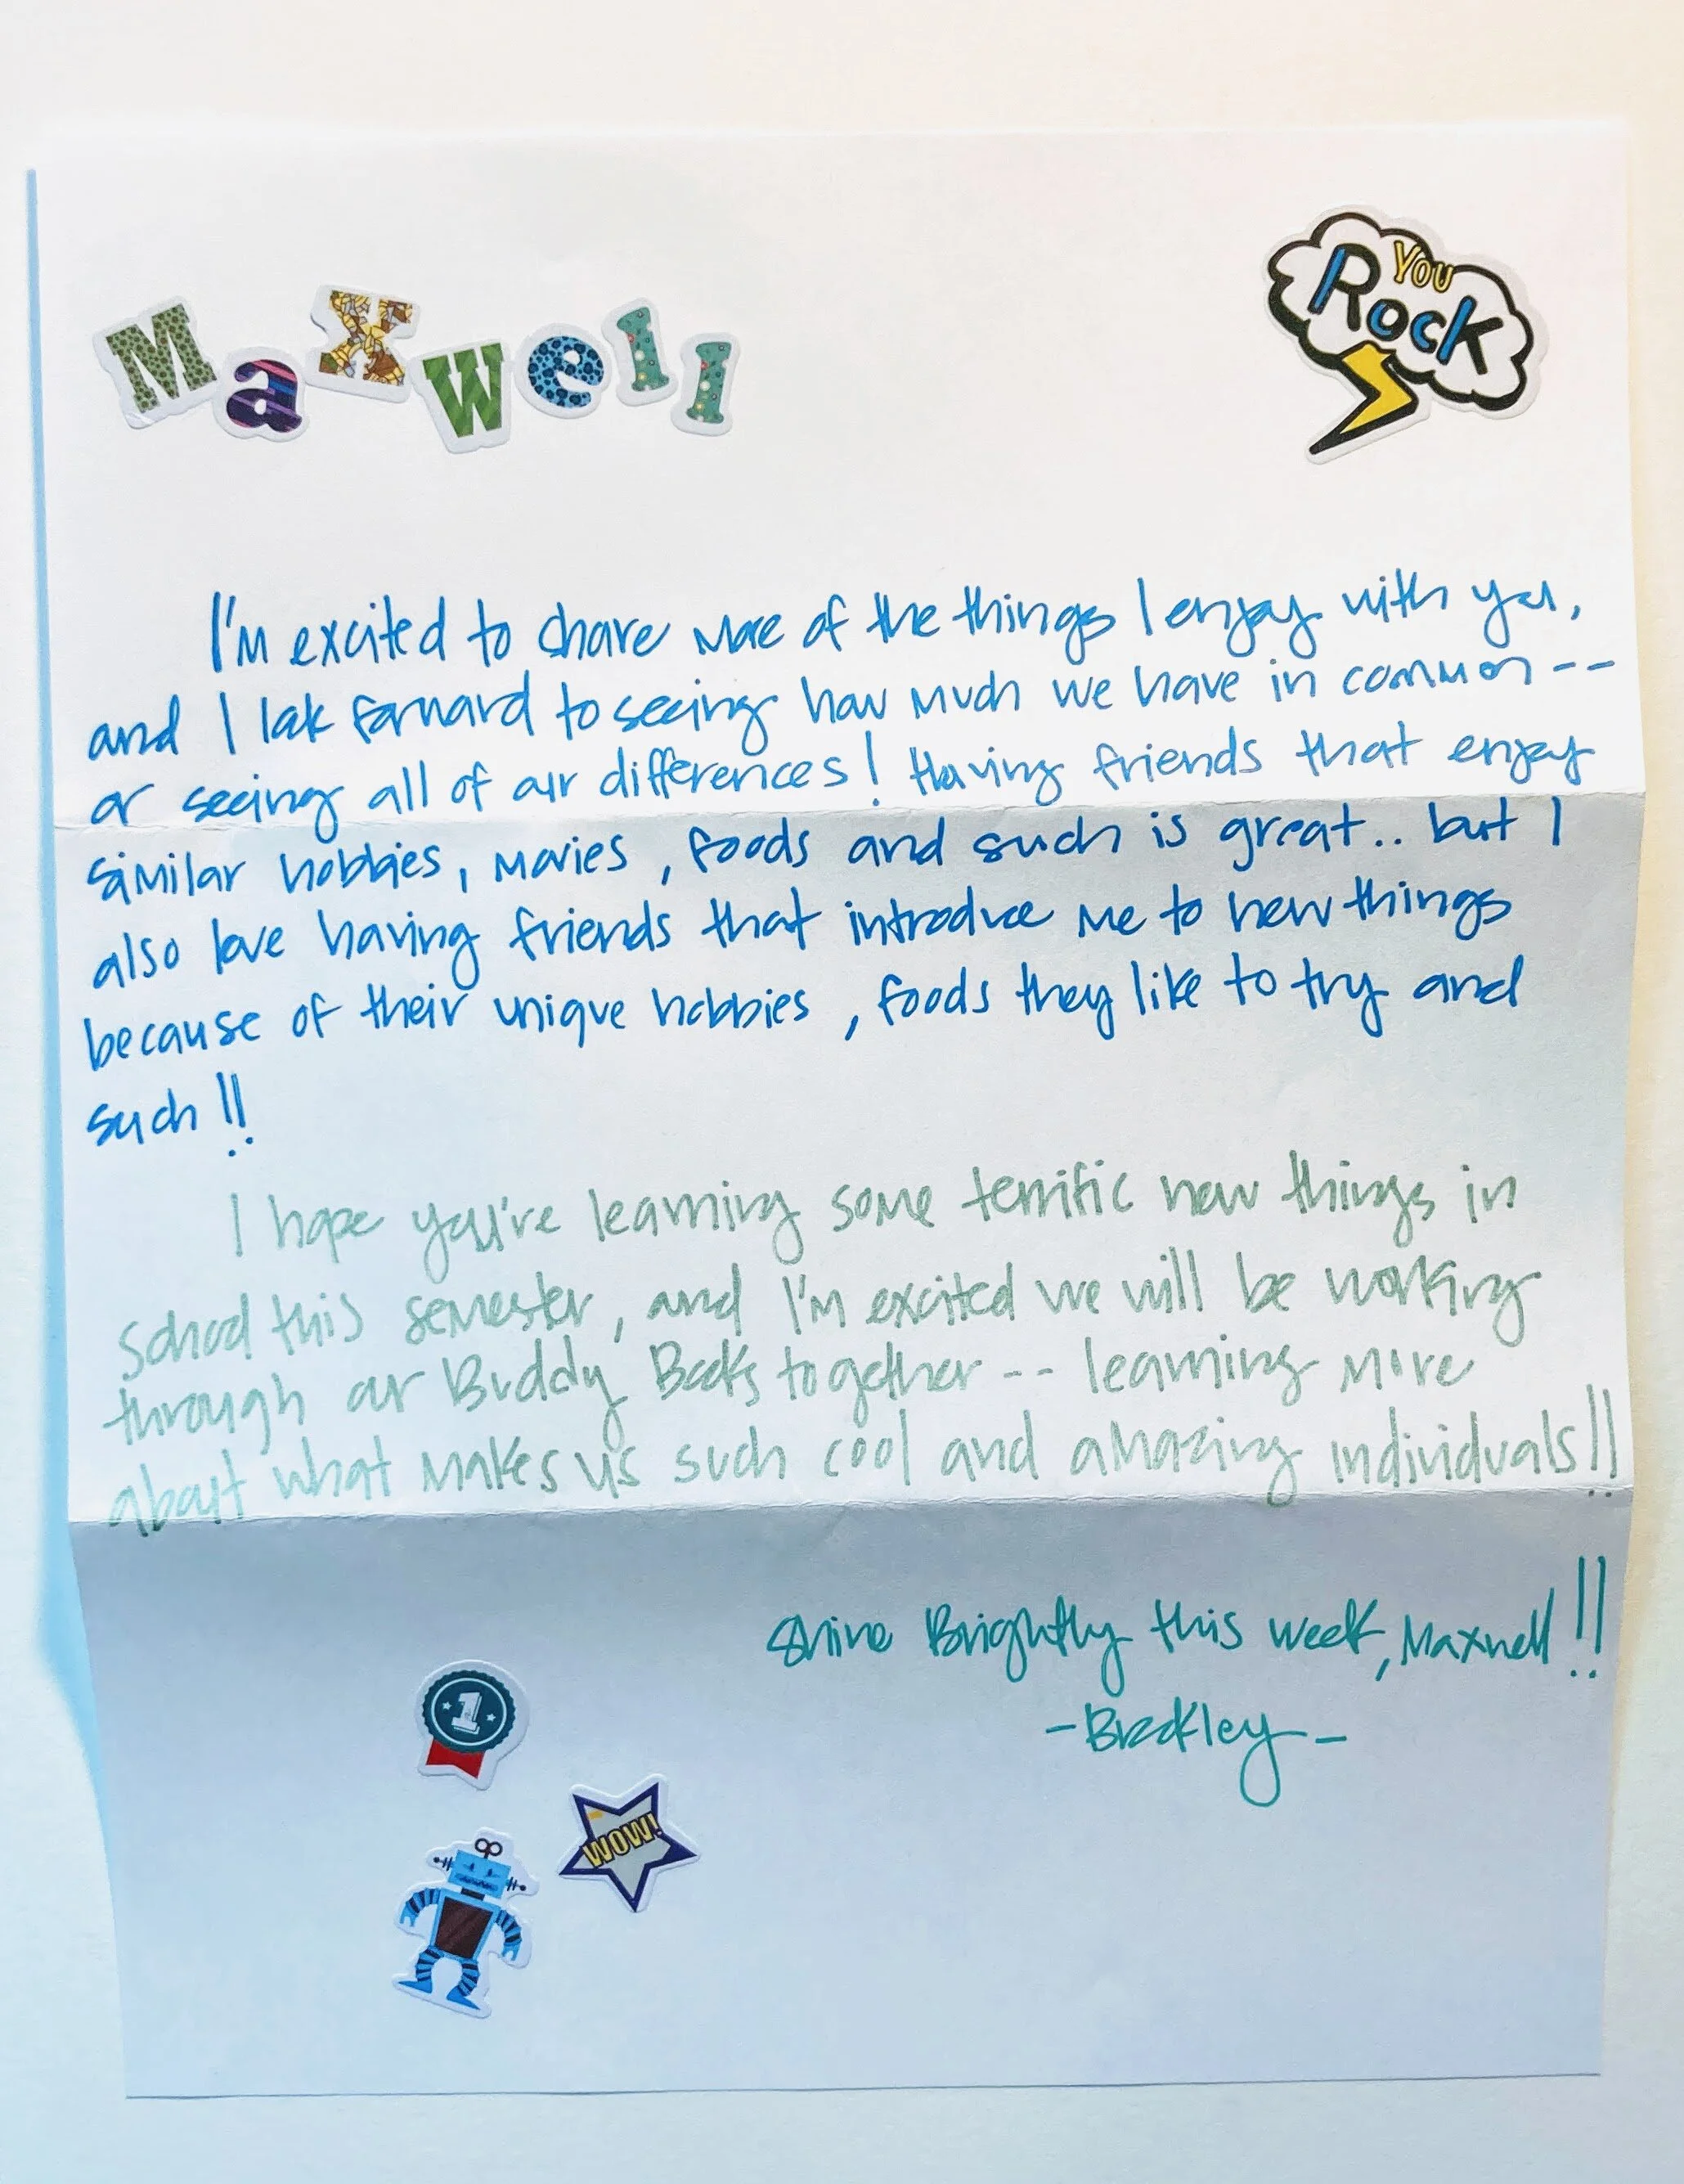 Maxwell
You
Rock
I'm excited to share more of the things I enjoy with you,
and I look forward to seeing how much we have in common --
or seeing all of our differences! Having friends that enjoy
similar hobbies, movies, foods and such is great.. but I
also love having friends that introduce me to new things
because of their unique hobbies, foods they like to try and
such!!
I hope you're learning some terrific new things in
school this semester, and I'm excited we will be working
through our Buddy Books together -- learning more
about what makes us such cool and amazing individuals!!
Shine Brightly this week, Maxwell!!
1
-Brockley-
WOW!